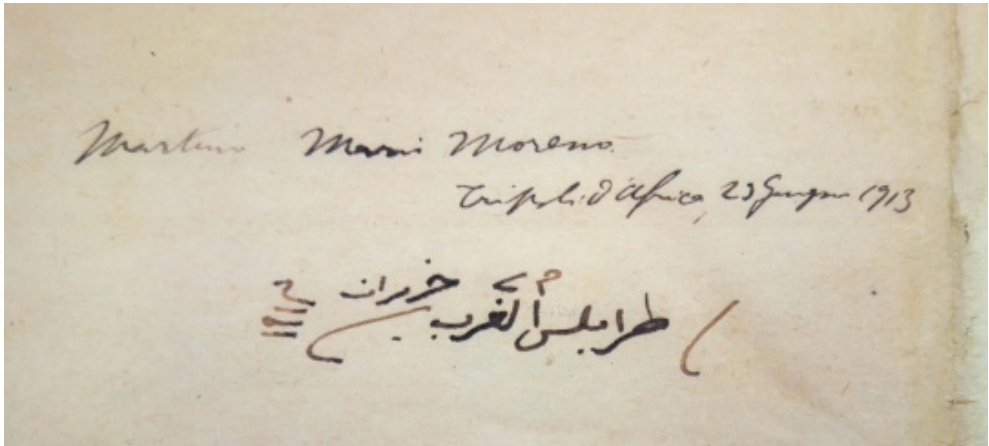 Martino Mario Moreno.
Tripoli d'Africa, 23 Giugno 1913
طرابلس الغرب حزيران